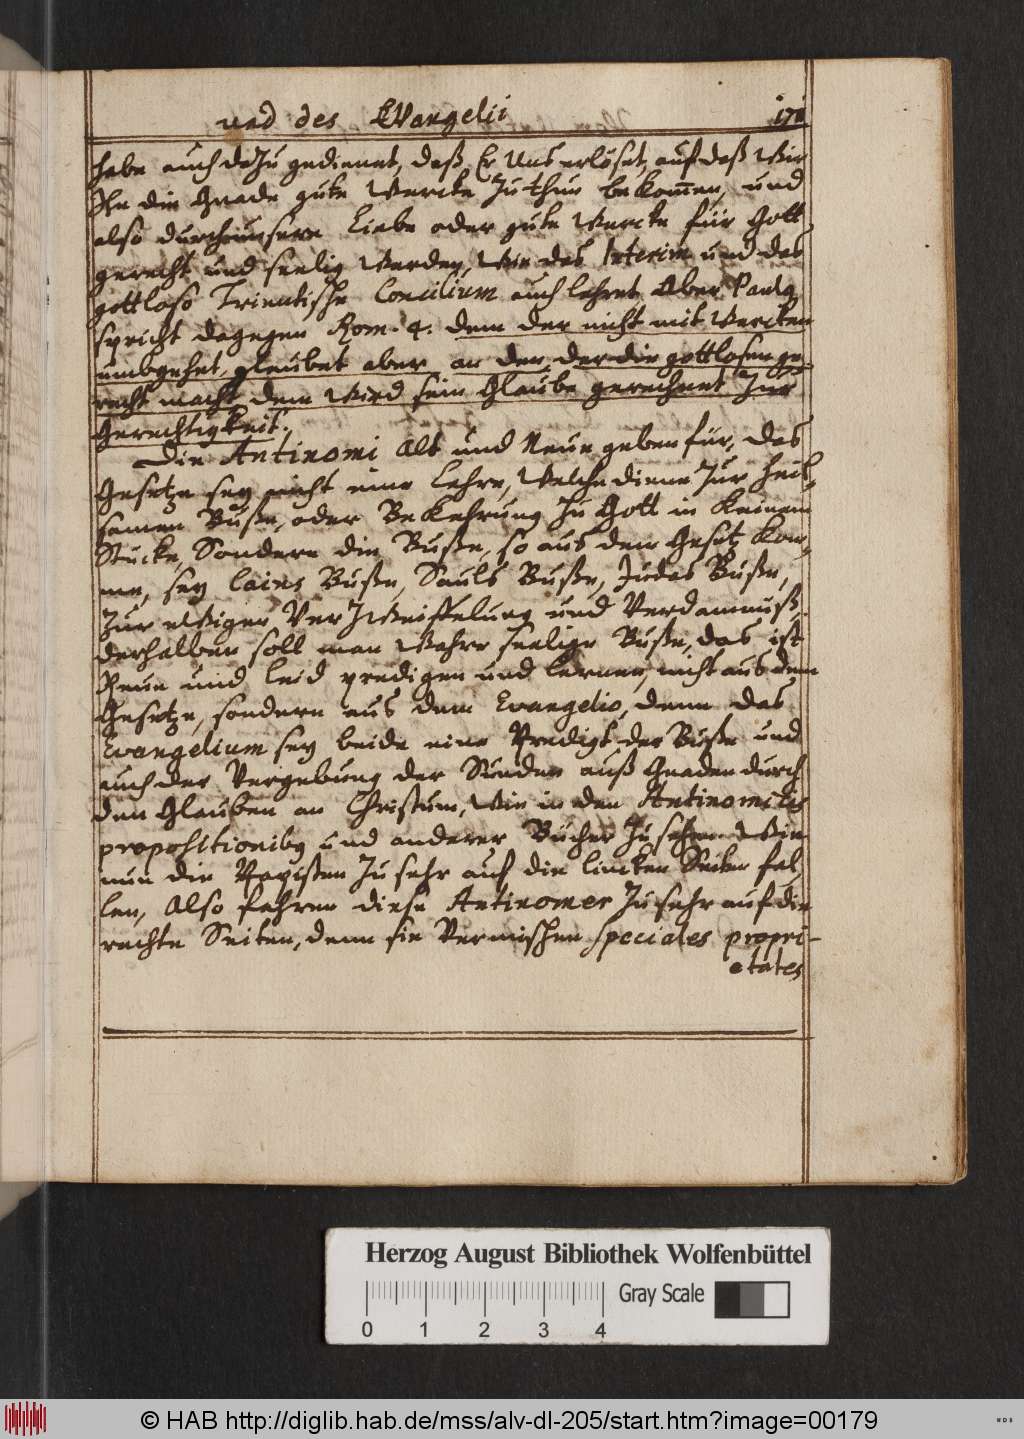 und des Evangelii 171
habe auch dazu gedienet, daß Er Uns erlöset, auf daß Wir
die Gnade gute Wercke zu thun bekom̅en, und
also durch unsere Liebe oder gute Wercke für Gott
gerecht und seelig Werden, Wie das Interim und das
gottlose Trientische Concilium auch lehret Aber Paulus
spricht dagegen Rom. 4. dem der nicht mit Wercken
umbgehet, gleubet aber an den, der die gottlosen ge
recht macht dem Wird sein Glaube gerechnet Zur
Gerechtigkeit.
Die Antinomi Alt und Neue geben für, das
Gesetze sey nicht eine Lehre, Welche diene Zur heil-
samen Buße, oder Bekehrung Zu Gott in Keinem
Stücke, Sondern die Buße, so aus dem Gesetz Kom-
me, sey Cains Buße, Sauls Buße, Judas Buße,
Zur eWigen VerZWeiffelung und Verdamnuß.
derhalben soll man Wahre seelige Buße, das ist
Reue und Leid predigen und lernen, nicht aus dem
Gesetze, sondern aus dem Evangelio, denn das
Evangelium sey beide eine Predigt der Buße und
auch der Vergebung der Sünden auß Gnaden durch
den Glauben an Christum, Wie in den Antinomicis
propositionibus und anderer Bücher Zu sehen. Wie
nun die Papisten Zu sehr auf die lincken Seiten fal
len, Also fahren diese Antinomer Zu sehr auf die
rechte Seiten, denn sie Vermischen speciales propri-
etates
Herzog August Bibliothek Wolfenbüttel
Gray Scale
0 1 2 3 4
© HAB http://diglib.hab.de/mss/alv-dl-205/start.htm?image=00179
WDB